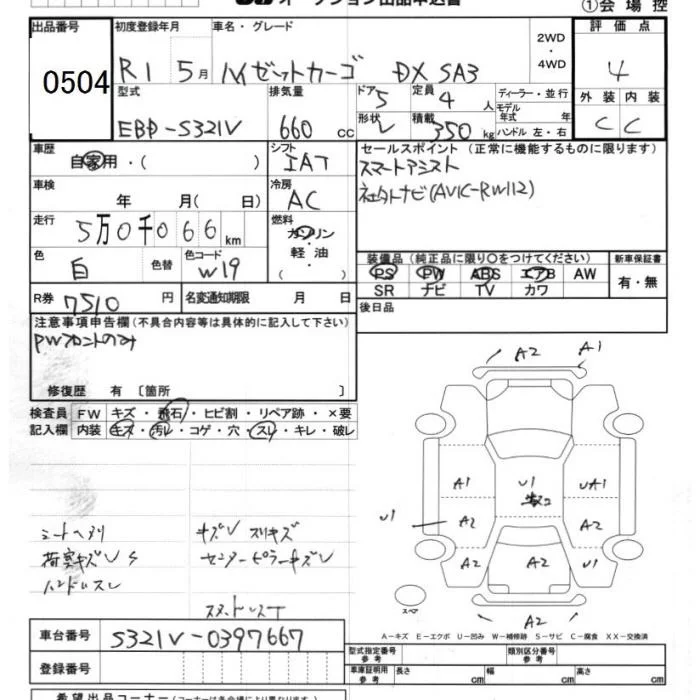 ①会場控
出品番号 初度登録年月 車名・グレード 2WD・4WD 評価点
0504 R1 5月 ハイゼットカーゴ DX SA3 4
型式 排気量 ドア 定員 ディーラー・並行 外装 内装
EBD-S321V 660 cc 5 4人 モデル年式 年 C C
形状 V 積載 350kg ハンドル 左・右
車歴 自家用・( ) シフト IAT セールスポイント (正常に機能するものに限ります)
スマートアシスト
社外ナビ(AVIC-RW112)
車検 年 月( 日) 冷房 AC
走行 5万0千066km 燃料 ガソリン・軽油・( )
色 白 色替 色コード W19 装備品(純正品に限り○をつけてください) 新車保証書
PS PW ABS エアB AW 有・無
SR ナビ TV カワ
R券 7510円 名変通知期限 月 日 後日品
注意事項申告欄(不具合内容等は具体的に記入して下さい)
PWフロントのみ
修復歴 有 〔箇所 〕
検査員 FW キズ・飛石・ヒビ割・リペア跡・×要
記入欄 内装 キズ・汚レ・コゲ・穴・スレ・キレ・破レ
A2 A1
A1 U1 UA1
U1 A2 A2
A2 A2 U1
スペア A2
シートヘタリ キズV スリキズ
荷室キズV S センターピラーキズV
ハンドルスレ
A-キズ E-エクボ U-凹み W-補修跡 S-サビ C-腐食 XX-交換済
車台番号 S321V-0397667
型式指定番号 参考 類別区分番号 参考
登録番号 車庫証明用 参考 長さ cm 幅 cm 高さ cm
希望出品コーナー